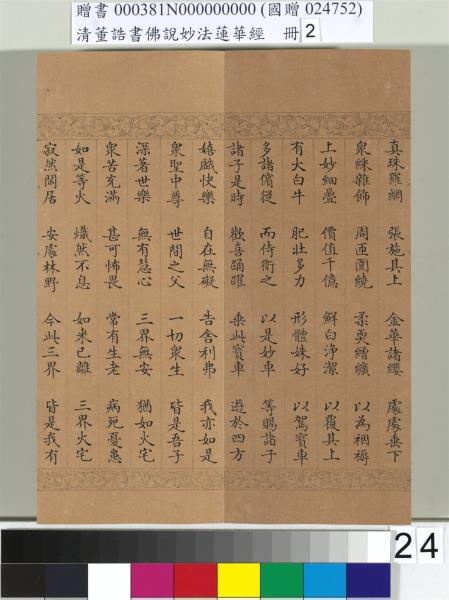 贈書 000381N000000000 (國贈 024752)
清董誥書佛說妙法蓮華經 冊 2
真珠羅網 張施其上 金華諸纓 處處垂下
眾綵雜飾 周匝圍繞 柔耎繒纊 以為裀褥
上妙細㲲 價值千億 鮮白淨潔 以覆其上
有大白牛 肥壯多力 形體姝好 以駕寶車
多諸儐從 而侍衛之 以是妙車 等賜諸子
諸子是時 歡喜踊躍 乘此寶車 遊於四方
嬉戲快樂 自在無礙 告舍利弗 我亦如是
眾聖中尊 世間之父 一切眾生 皆是吾子
深著世樂 無有慧心 三界無安 猶如火宅
眾苦充滿 甚可怖畏 常有生老 病死憂患
如是等火 熾然不息 如來已離 三界火宅
寂然閑居 安處林野 今此三界 皆是我有
24